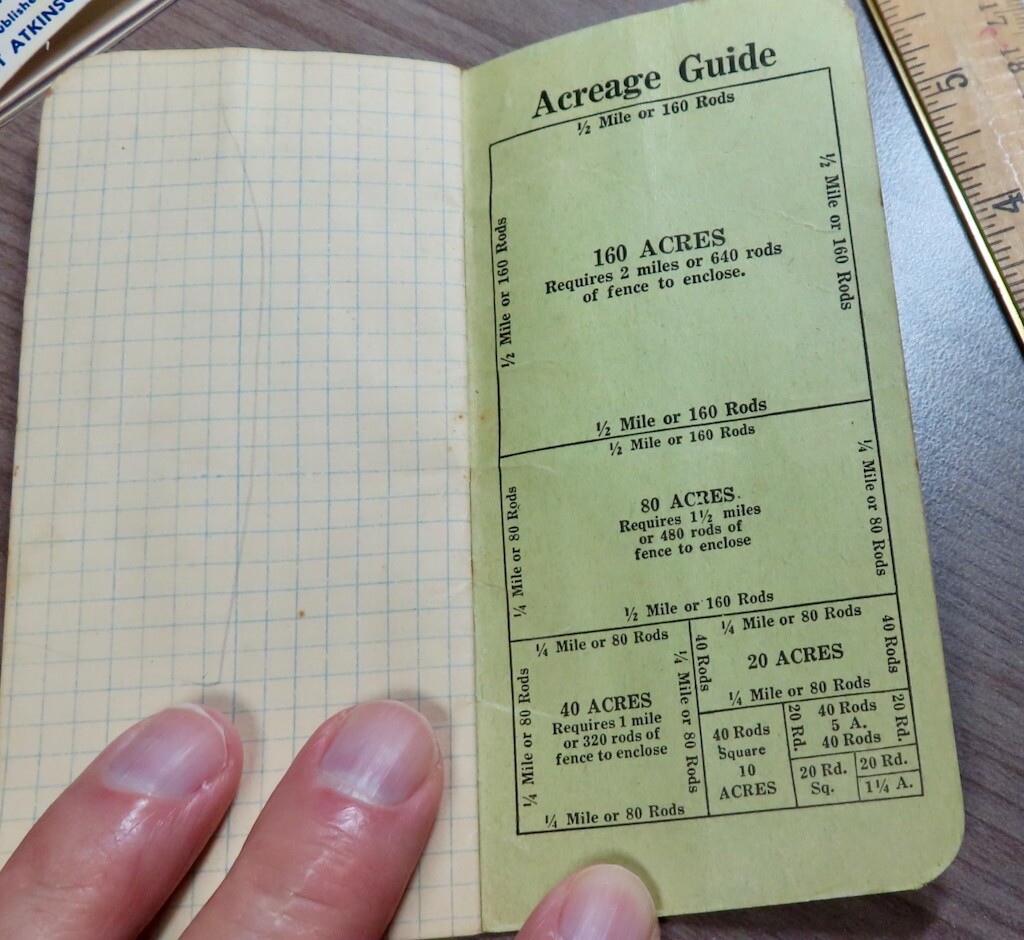 ublishe
T ATKINSO
Acreage Guide
½ Mile or 160 Rods
½ Mile or 160 Rods
½ Mile or 160 Rods
160 ACRES
Requires 2 miles or 640 rods
of fence to enclose.
½ Mile or 160 Rods
½ Mile or 160 Rods
¼ Mile or 80 Rods
¼ Mile or 80 Rods
80 ACRES.
Requires 1½ miles
or 480 rods of
fence to enclose
½ Mile or 160 Rods
¼ Mile or 80 Rods
¼ Mile or 80 Rods
¼ Mile or 80 Rods
40 ACRES
Requires 1 mile
or 320 rods of
fence to enclose
¼ Mile or 80 Rods
¼ Mile or 80 Rods
40 Rods
40 Rods
20 ACRES
¼ Mile or 80 Rods
40 Rods
Square
10
ACRES
20 Rd.
40 Rods
5 A.
40 Rods
20 Rd.
20 Rd.
Sq.
20 Rd.
1¼ A.
5
4
17
18